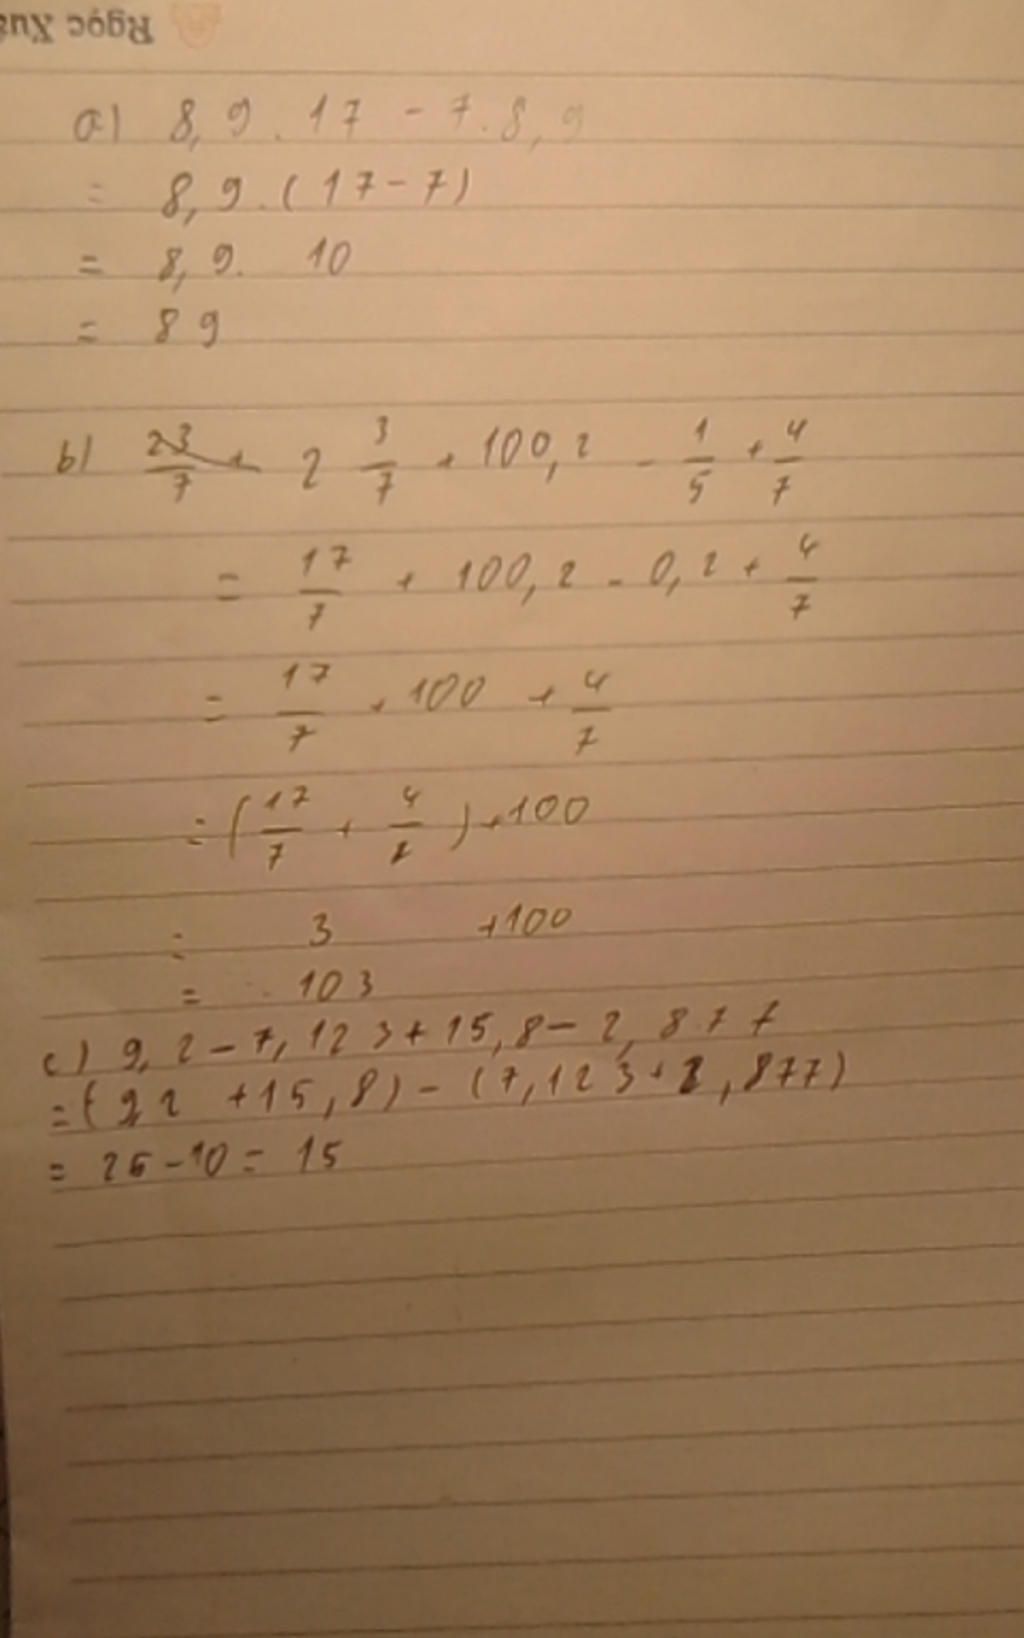 Ngọc Xuâ
a) 8,9 . 17 - 7 . 8,9
= 8,9 . (17-7)
= 8,9 . 10
= 89
b) 2 3/7 + 100,2 - 1/5 + 4/7
= 17/7 + 100,2 - 0,2 + 4/7
= 17/7 + 100 + 4/7
= (17/7 + 4/7) + 100
= 3 + 100
= 103
c) 9,2 - 7,123 + 15,8 - 2,877
= (9,2 + 15,8) - (7,123 + 2,877)
= 25 - 10 = 15